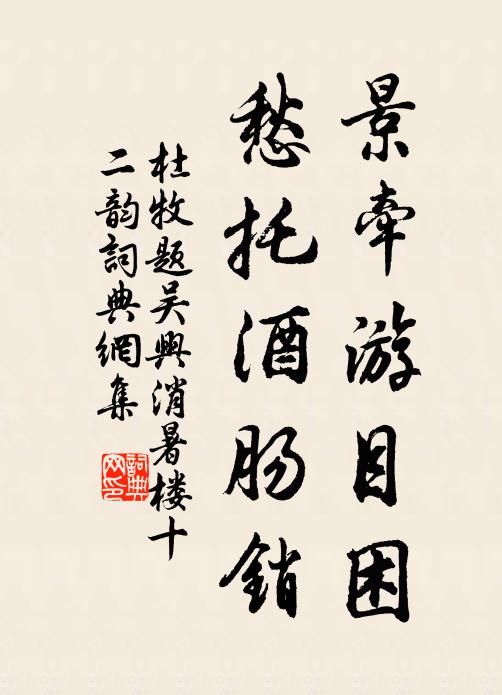 景牵游目困
愁托酒肠銷
杜牧题吴興消暑楼十
二韵詞典網集
詞典網印